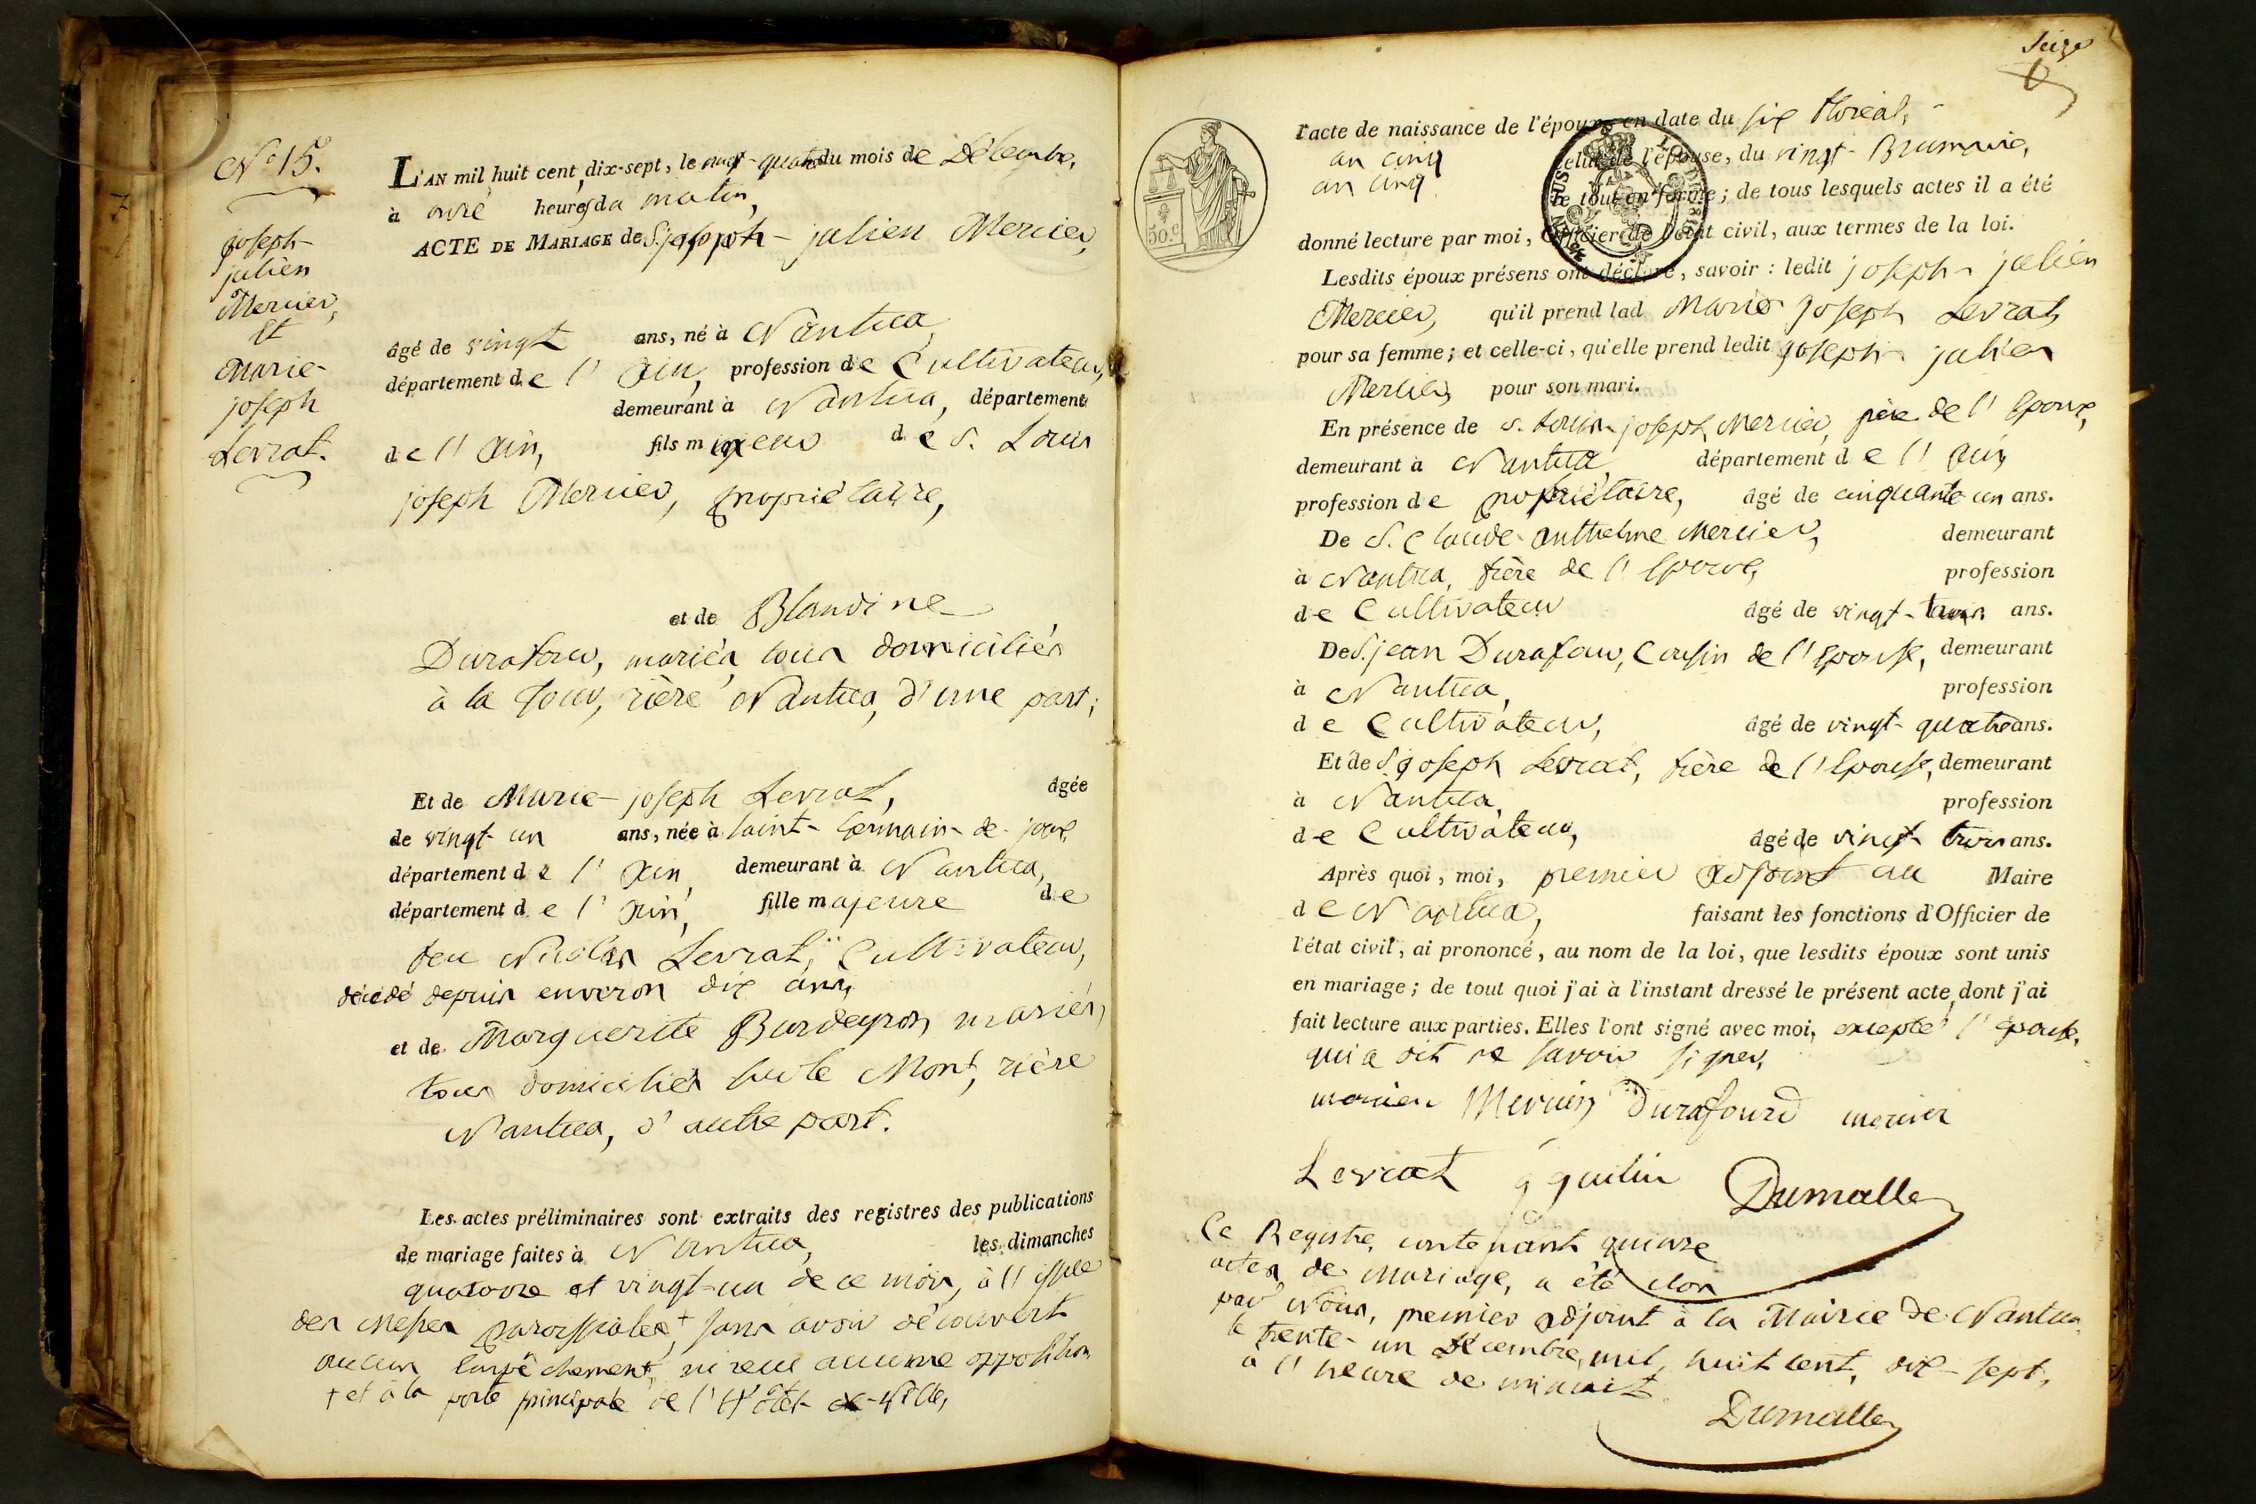 N.º 15.
joseph-
julien
Mercier,
Et
Marie-
joseph
Levrat.
L'AN mil huit cent dix-sept, le vingt-quatre du mois de Décembre,
à onze heures du matin,
ACTE DE MARIAGE de S. joseph-julien Mercier,
âgé de vingt ans, né à Nantua
département de l'Ain, profession de Cultivateur,
demeurant à Nantua, département
de l'Ain, fils mineur de S. Louis
joseph Mercier, propriétaire,
et de Blandine
Durafour, mariés, tous domiciliés
à la Tour, rière Nantua, d'une part;
Et de Marie-joseph Levrat, âgée
de vingt-un ans, née à Saint-Germain-de-joux,
département de l'Ain, demeurant à Nantua,
département de l'Ain, fille majeure de
feu Nicolas Levrat, Cultivateur,
décédé depuis environ dix ans,
et de Marguerite Burdeyron, mariés,
tous domiciliés sur le Mont, rière
Nantua, d'autre part.
Les actes préliminaires sont extraits des registres des publications
de mariage faites à Nantua, les dimanches
quatorze et vingt-un de ce mois, à l'issue
des Messes paroissiales,+ sans avoir découvert
aucun Empêchement, ni reçu aucune opposition
+ et à la porte principale de l'Hôtel-de-Ville,
Seize
50.c
l'acte de naissance de l'époux en date du six floréal,
an cinq celui de l'épouse, du vingt-Brumaire,
an cinq le tout en forme; de tous lesquels actes il a été
donné lecture par moi, Officier de l'état civil, aux termes de la loi.
Lesdits époux présens ont déclaré, savoir : ledit joseph-julien
Mercier, qu'il prend lad Marie-joseph Levrat,
pour sa femme; et celle-ci, qu'elle prend ledit joseph-julien
Mercier, pour son mari.
En présence de S. Louis-joseph Mercier, père de l'Epoux,
demeurant à Nantua, département de l'Ain,
profession de propriétaire, âgé de cinquante-un ans.
De S. Claude-Anthelme Mercier, demeurant
à Nantua, frère de l'Epoux, profession
de Cultivateur âgé de vingt-trois ans.
De S. jean Durafour, Cousin de l'Epouse, demeurant
à Nantua, profession
de Cultivateur, âgé de vingt-quatre ans.
Et de S. joseph Levrat, frère de l'Epouse, demeurant
à Nantua, profession
de Cultivateur, âgé de vingt-trois ans.
Après quoi, moi, premier adjoint au Maire
de Nantua, faisant les fonctions d'Officier de
l'état civil, ai prononcé, au nom de la loi, que lesdits époux sont unis
en mariage; de tout quoi j'ai à l'instant dressé le présent acte, dont j'ai
fait lecture aux parties. Elles l'ont signé avec moi, excepté l'épouse,
qui a dit ne savoir signer.
mercier Mercier Durafourd mercier
Levrat Dumalle
Ce Registre, contenant quinze
actes de Mariage, a été clos
par Nous, premier adjoint à la Mairie de Nantua,
le trente-un Décembre, mil huit cent, dix-sept,
à l'heure de minuit
Dumalle